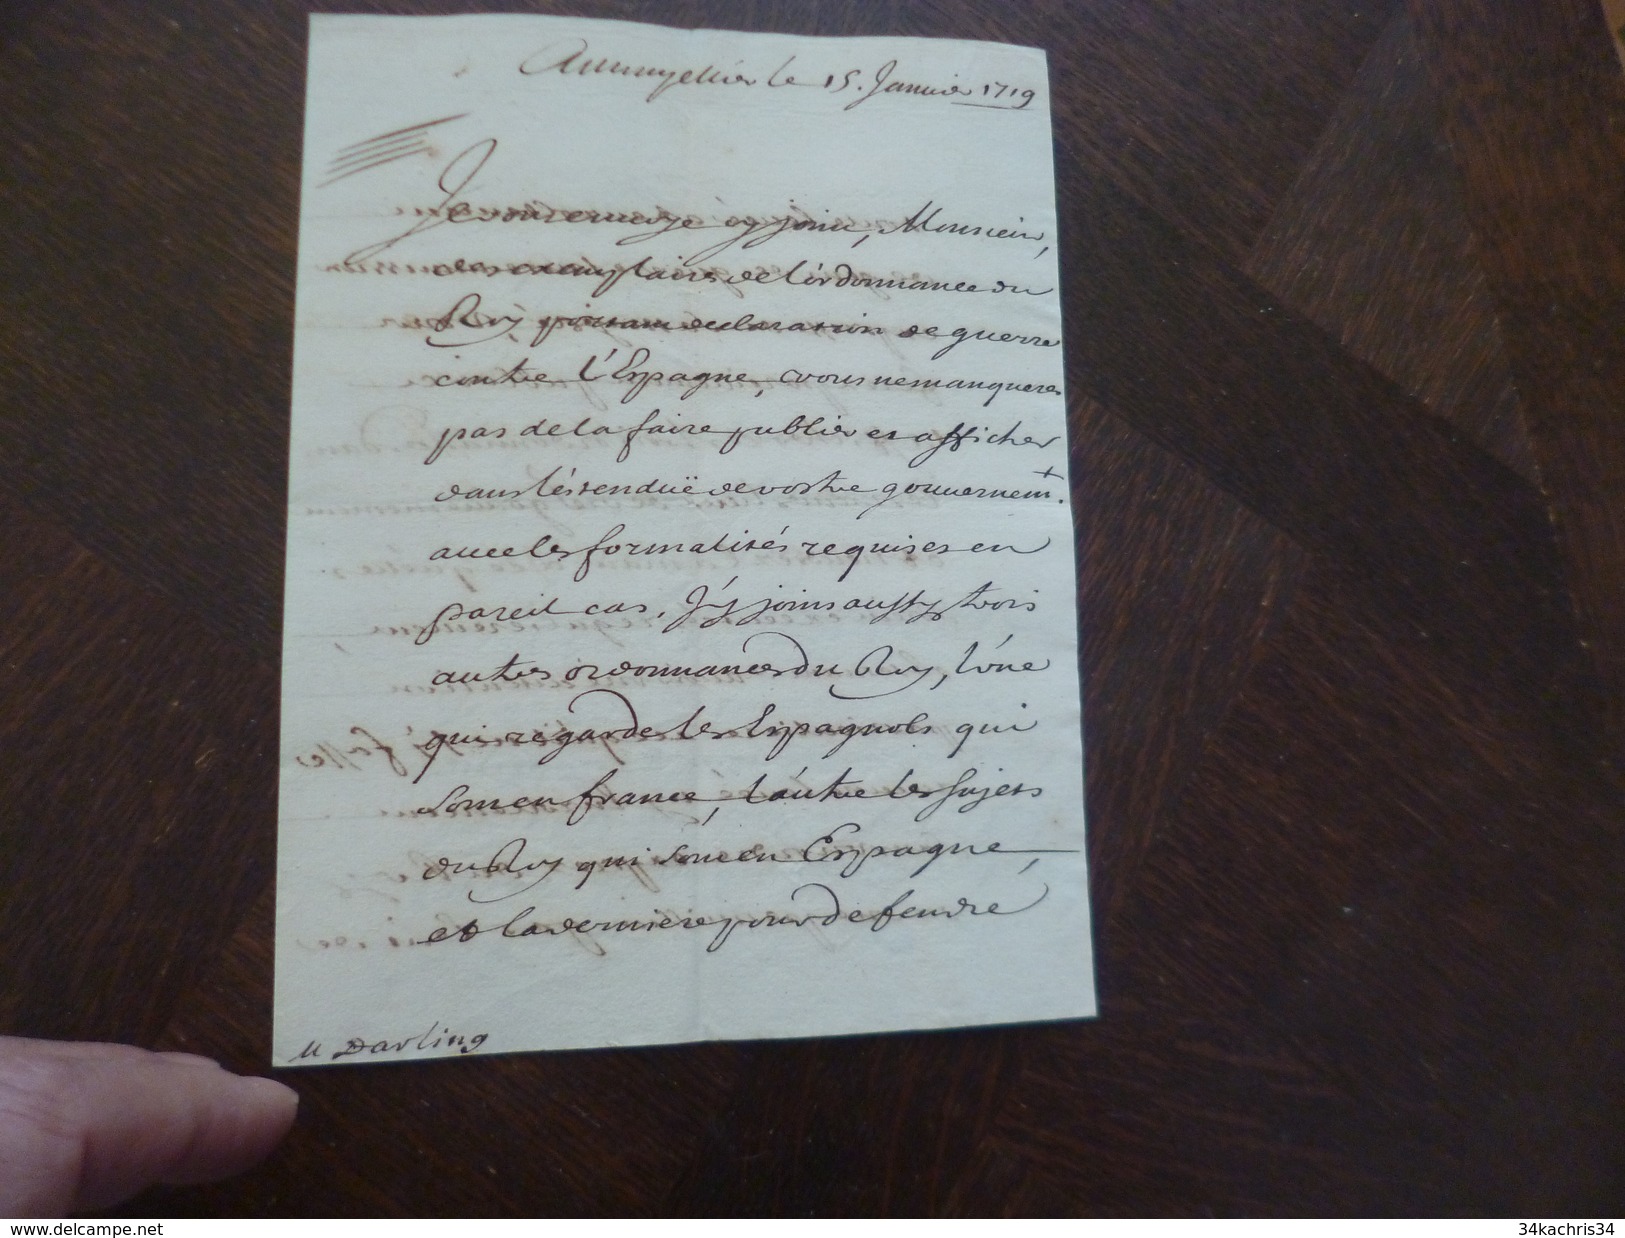 A Montpellier le 15. Janvier 1719
Je vous envoye cy joint, Monsieur,
des exemplaires de l'ordonnance du
Roy portant declaration de guerre
contre l'Espagne, vous ne manquerés
pas de la faire publier et afficher
dans l'éstenduë de vostre gouvernemt.
avec les formalités requises en
pareil cas. J'y joins aussy trois
autres ordonnances du Roy, l'une
qui regarde les Espagnols qui
sont en france, l'autre les sujets
du Roy qui sont en Espagne,
et la derniere pour defendre
M Darling
www.delcampe.net
34kachris34